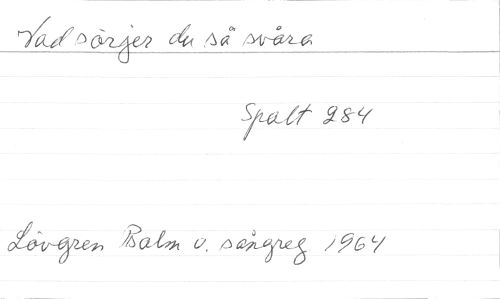 Vad sörjer du så svåra
Spalt 284
Lövgren Psalm o. sångreg 1964